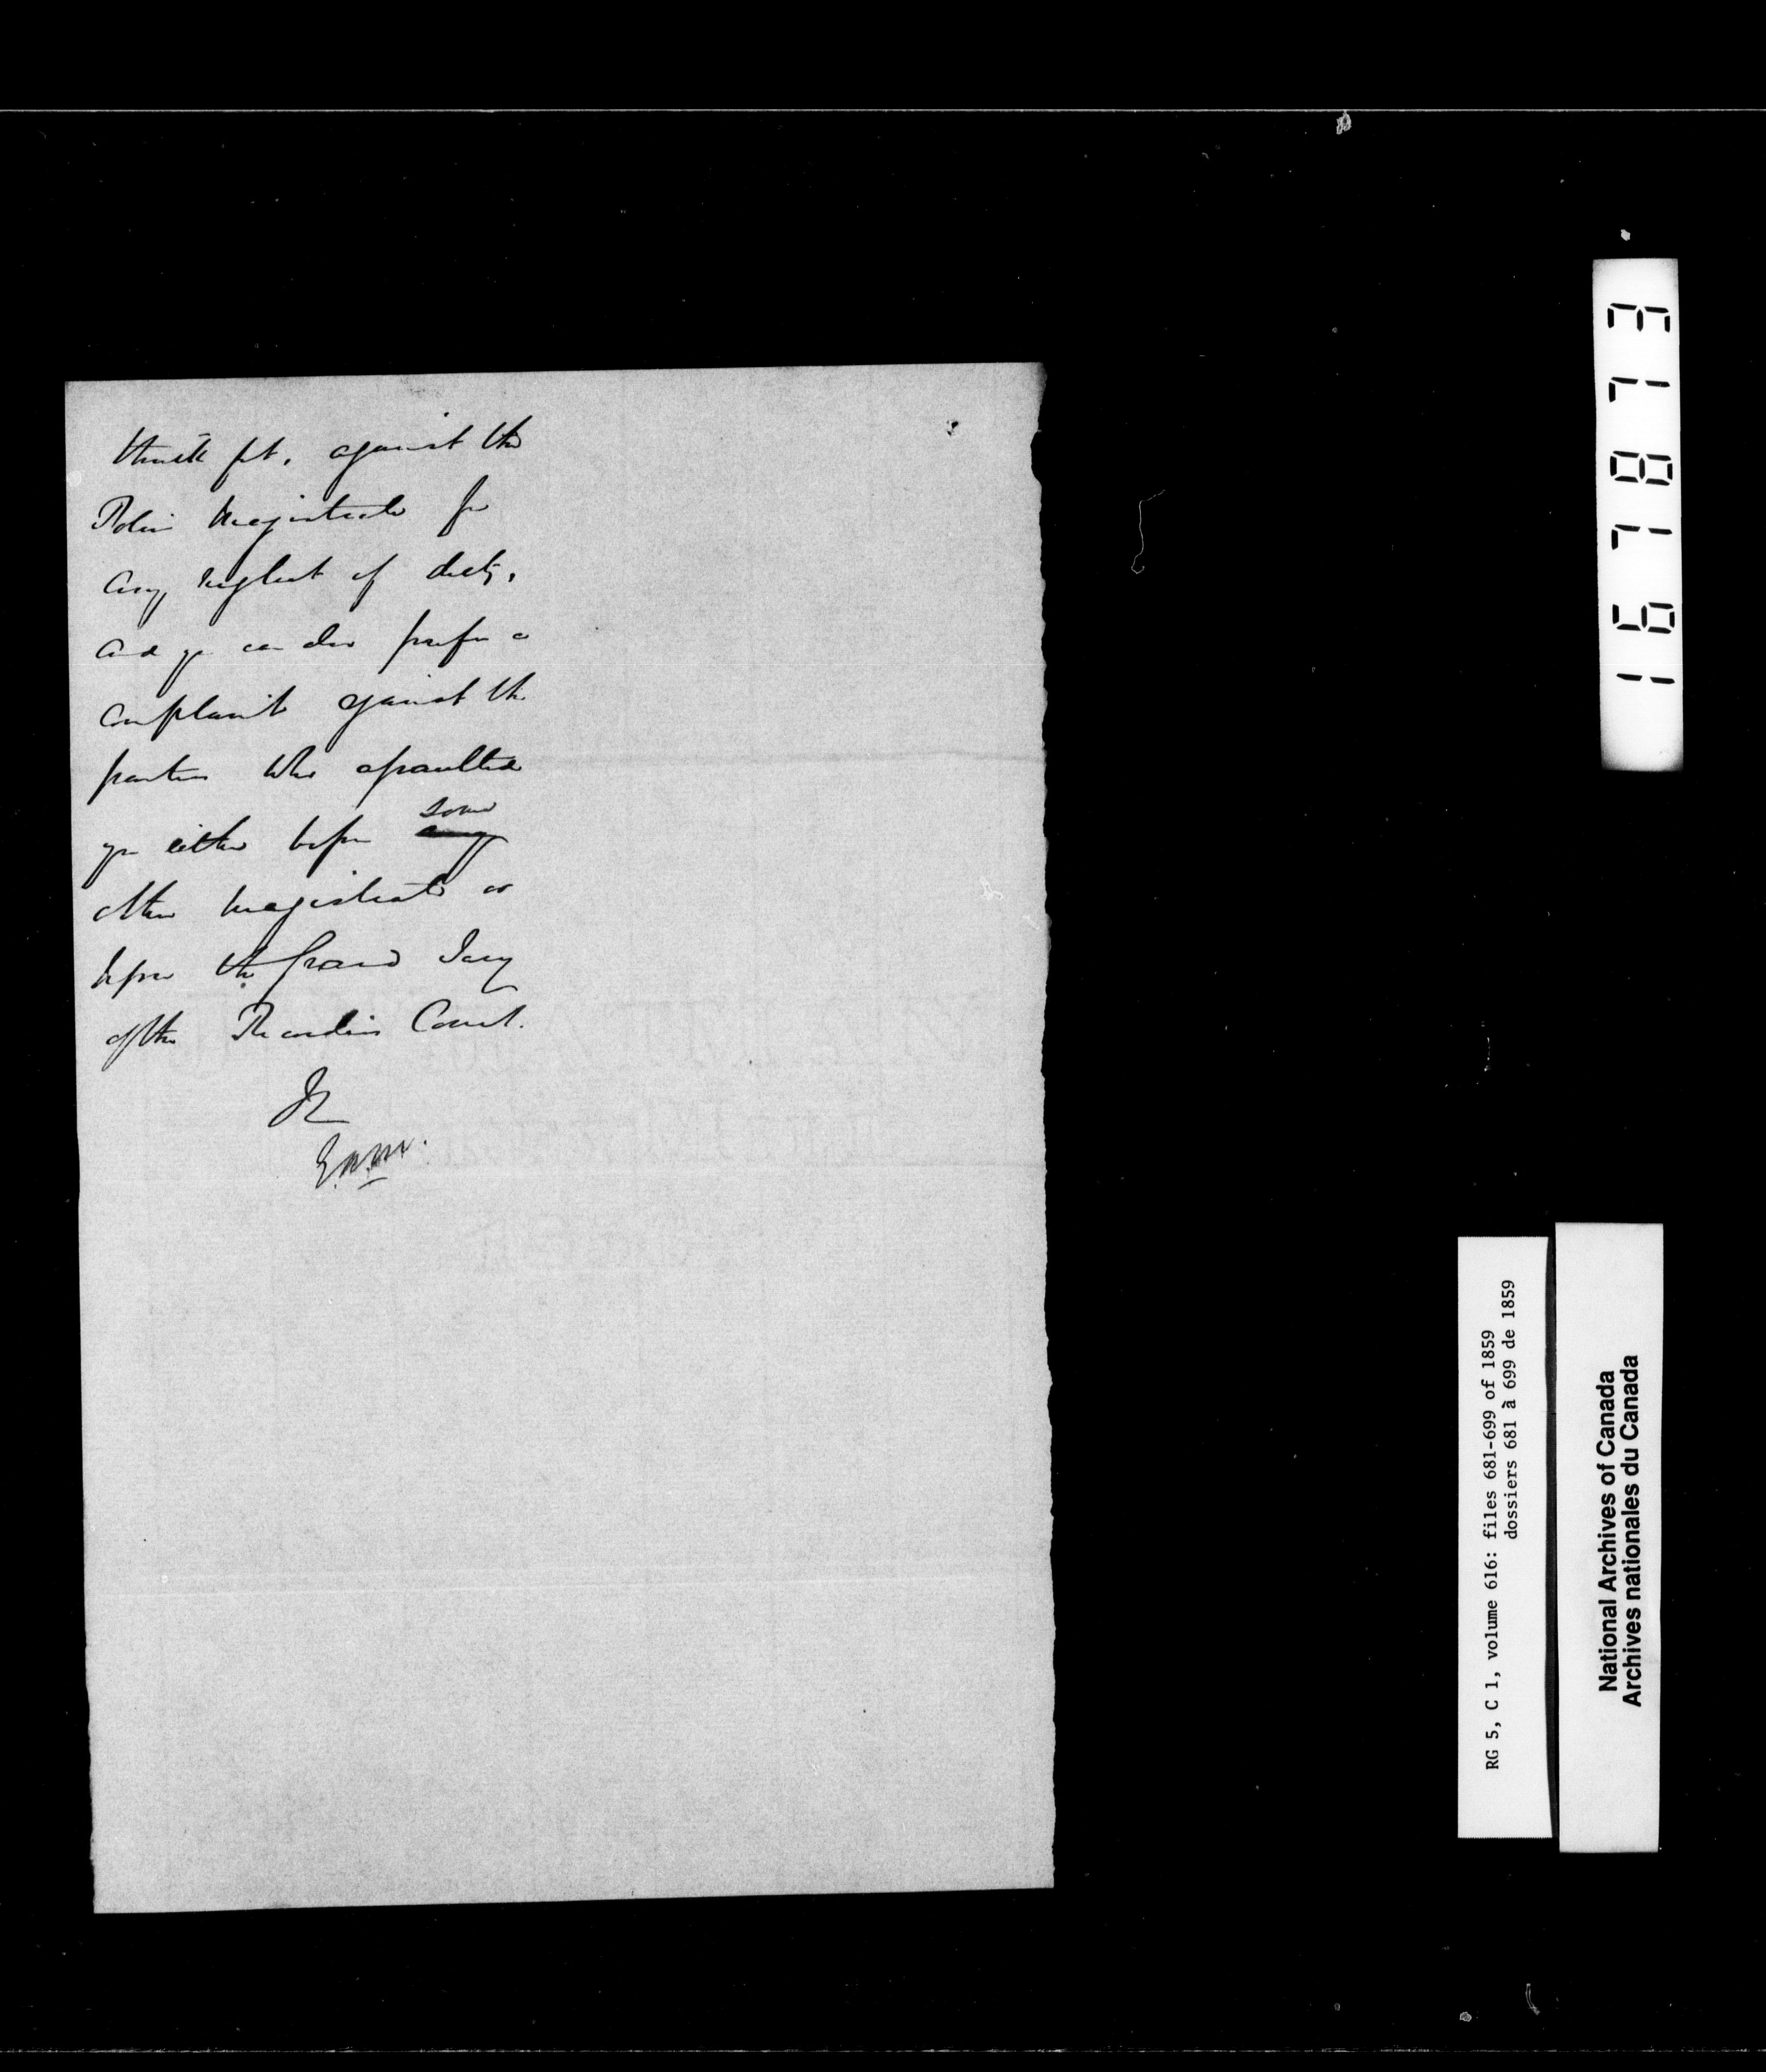 think fit, against the
Police Magistrate for
any neglect of duty,
and you can also prefer a
complaint against the
parties who assaulted
you either before any some
other Magistrate or
before the Grand Jury
of the Recorders Court.
167873
RG 5, C 1, volume 616: files 681-699 of 1859
dossiers 681 à 699 de 1859
National Archives of Canada
Archives nationales du Canada